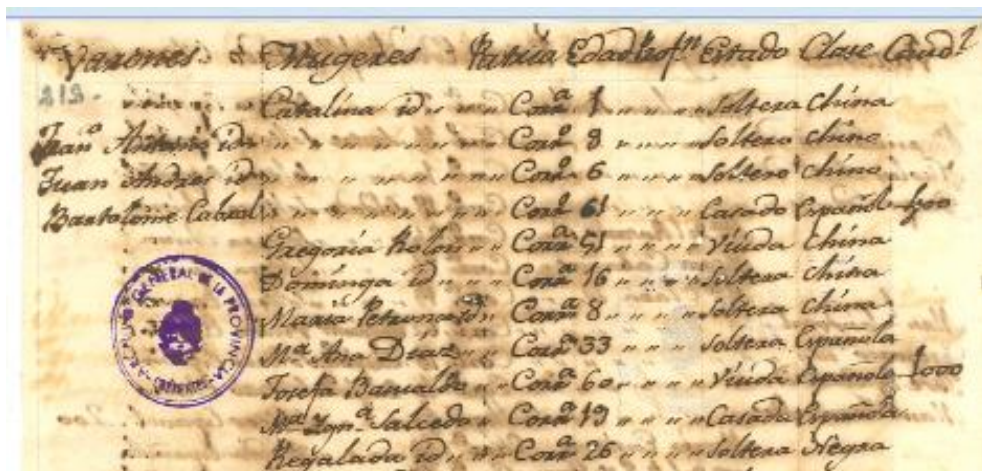 Varones Mugeres Patria Edad Prof.n Estado Clase Caud.l
213. Catalina id " " " Corr.a 1 " " " " Soltera China
Juan Antonio id " " " " " " " " Corr.o 8 " " " " Soltero Chino
Juan Andres id " " " " " " " " Corr.o 6 " " " " Soltero Chino
Bartolome Cabral " " " " " " " Corr.o 61 " " " " Casado Español
Gregoria Rolon " " Corr.a 51 " " " " Viuda China
Dominga id " " " Corr.a 16 " " " " Soltera China
Maria Petrona id " Corr.a 8 " " " " Soltera China
M.a Ana Diaz " " Corr.a 33 " " " Soltera Española
Josefa " Corr.a 60 " " " " Viuda Española
M.a Salcedo " Corr.a 19 " " " Casada Española
Regalada id " " Corr.a 26 " " " Soltera Negra
GENERAL DE LA PROVINCIA